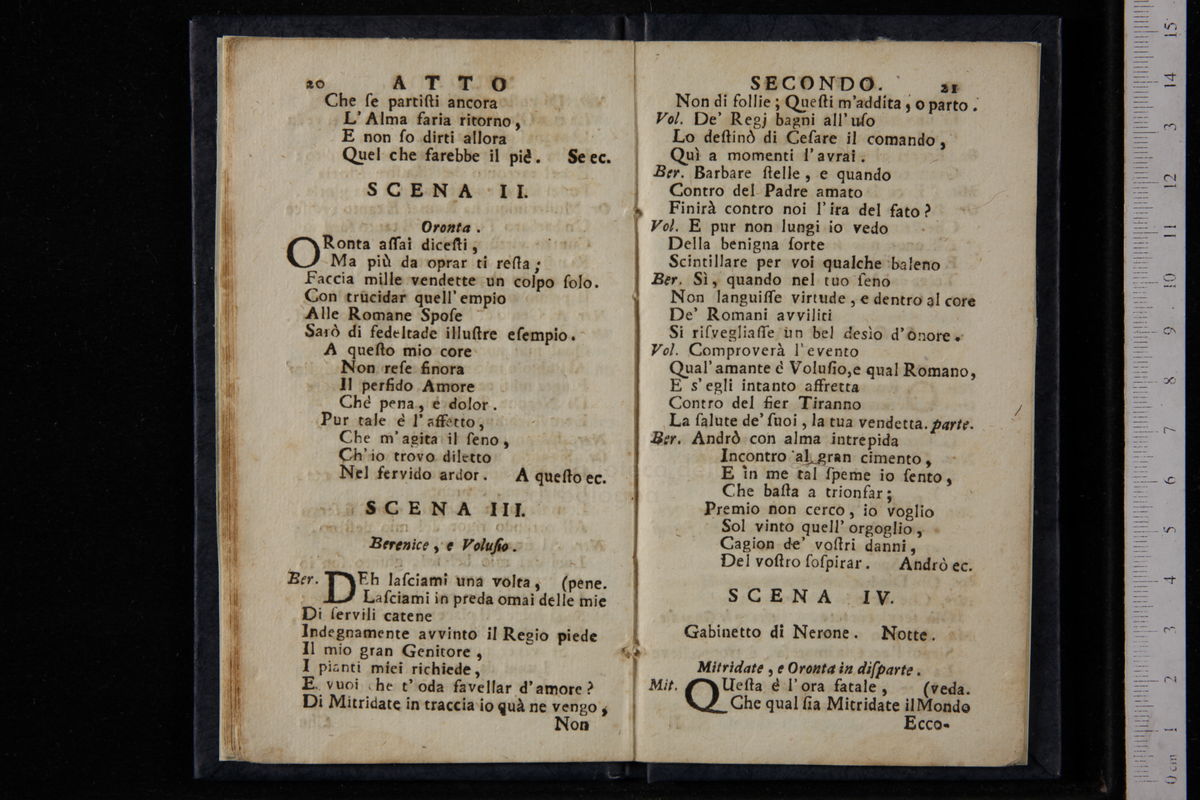 20 ATTO
Che ſe partiſti ancora
L'Alma faria ritorno,
E non ſo dirti allora
Quel che farebbe il piè. Se ec.
SCENA II.
Oronta.
ORonta aſſai diceſti,
Ma più da oprar ti reſta;
Faccia mille vendette un colpo ſolo.
Con trucidar quell' empio
Alle Romane Spoſe
Sarò di fedeltade illuſtre eſempio.
A queſto mio core
Non reſe finora
Il perfido Amore
Chè pena, e dolor.
Pur tale è l'affetto,
Che m'agita il ſeno,
Ch'io trovo diletto
Nel fervido ardor. A queſto ec.
SCENA III.
Berenice, e Voluſio.
Ber. DEh laſciami una volta, (pene.
Laſciami in preda omai delle mie
Di ſervili catene
Indegnamente avvinto il Regio piede
Il mio gran Genitore,
I pianti miei richiede,
E vuoi che t'oda favellar d'amore?
Di Mitridate in traccia io quà ne vengo,
Non
SECONDO. 21
Non di follie; Queſti m'addita, o parto.
Vol. De' Regj bagni all'uſo
Lo deſtinò di Ceſare il comando,
Quì a momenti l'avrai.
Ber. Barbare ſtelle, e quando
Contro del Padre amato
Finirà contro noi l'ira del fato?
Vol. E pur non lungi io vedo
Della benigna ſorte
Scintillare per voi qualche baleno
Ber. Sì, quando nel tuo ſeno
Non languiſſe virtude, e dentro al core
De' Romani avviliti
Si riſvegliaſſe un bel desìo d'onore.
Vol. Comproverà l'evento
Qual'amante è Voluſio, e qual Romano,
E s'egli intanto affretta
Contro del fier Tiranno
La ſalute de' ſuoi, la tua vendetta. parte.
Ber. Andrò con alma intrepida
Incontro al gran cimento,
E in me tal ſpeme io ſento,
Che baſta a trionfar;
Premio non cerco, io voglio
Sol vinto quell' orgoglio,
Cagion de' voſtri danni,
Del voſtro ſoſpirar. Andrò ec.
SCENA IV.
Gabinetto di Nerone. Notte.
Mitridate, e Oronta in diſparte.
Mit. QUeſta è l'ora fatale, (veda.
Che qual ſia Mitridate il Mondo
Ecco-
0 cm 1 2 3 4 5 6 7 8 9 10 11 12 13 14 15